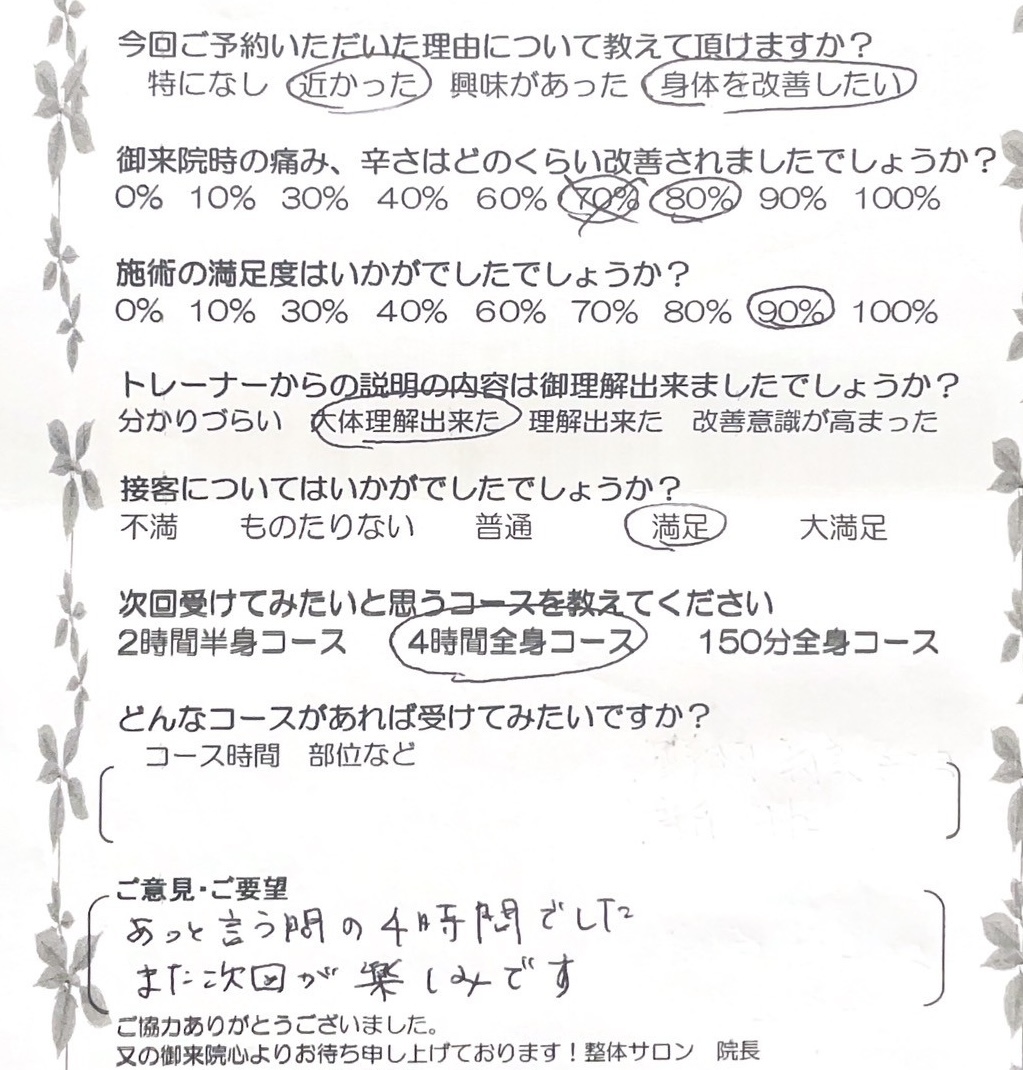 今回ご予約いただいた理由について教えて頂けますか？
特になし 近かった 興味があった 身体を改善したい
御来院時の痛み、辛さはどのくらい改善されましたでしょうか？
0% 10% 30% 40% 60% 70% 80% 90% 100%
施術の満足度はいかがでしたでしょうか？
0% 10% 30% 40% 60% 70% 80% 90% 100%
トレーナーからの説明の内容は御理解出来ましたでしょうか？
分かりづらい 大体理解出来た 理解出来た 改善意識が高まった
接客についてはいかがでしたでしょうか？
不満 ものたりない 普通 満足 大満足
次回受けてみたいと思うコースを教えてください
2時間半身コース 4時間全身コース 150分全身コース
どんなコースがあれば受けてみたいですか？
コース時間 部位など
ご意見・ご要望
あっと言う間の4時間でした
また次回が楽しみです
ご協力ありがとうございました。
又の御来院心よりお待ち申し上げております！整体サロン 院長